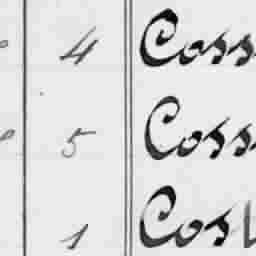 4 Coss
5 Coss
1 Cos